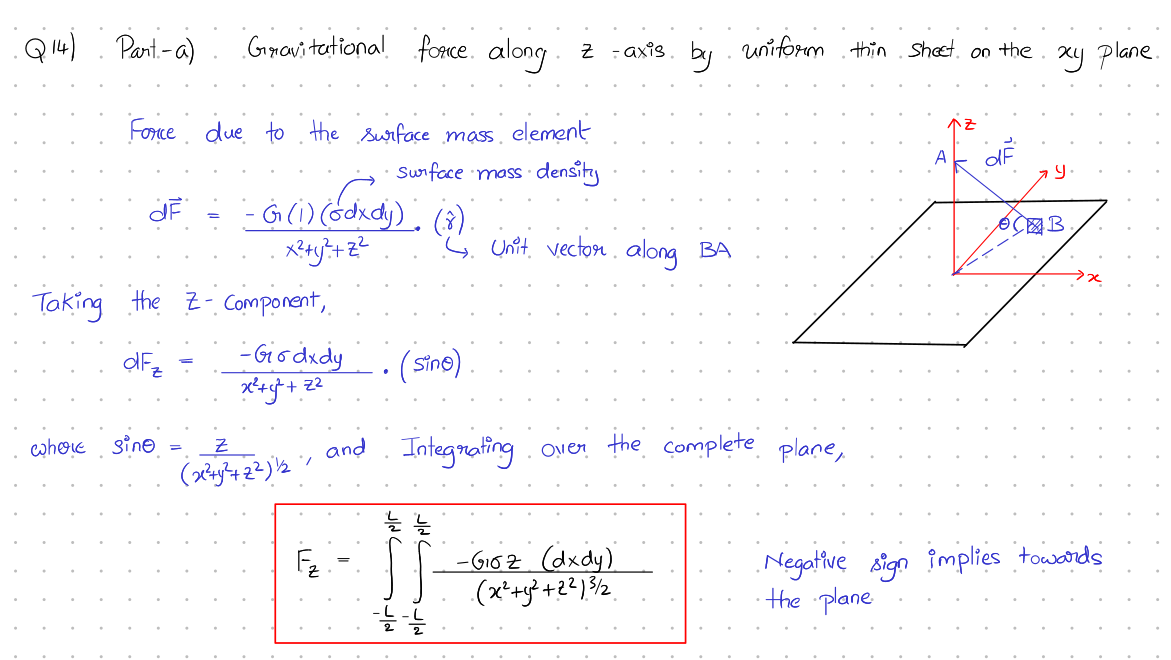 Q14) Part-a) Gravitational force along z-axis by uniform thin sheet on the xy plane.
Force due to the surface mass element
surface mass density
dF⃗ = -G(1)(σdxdy) / x²+y²+z² . (r̂)
Unit vector along BA
Taking the z-component,
dF_z = -Gσdxdy / x²+y²+z² . (sinθ)
where sinθ = z / (x²+y²+z²)^1/2 , and Integrating over the complete plane,
F_z = ∫_{-L/2}^{L/2} ∫_{-L/2}^{L/2} -Gσz (dxdy) / (x²+y²+z²)^3/2
Negative sign implies towards
the plane
z
A dF⃗
y
θ B
x